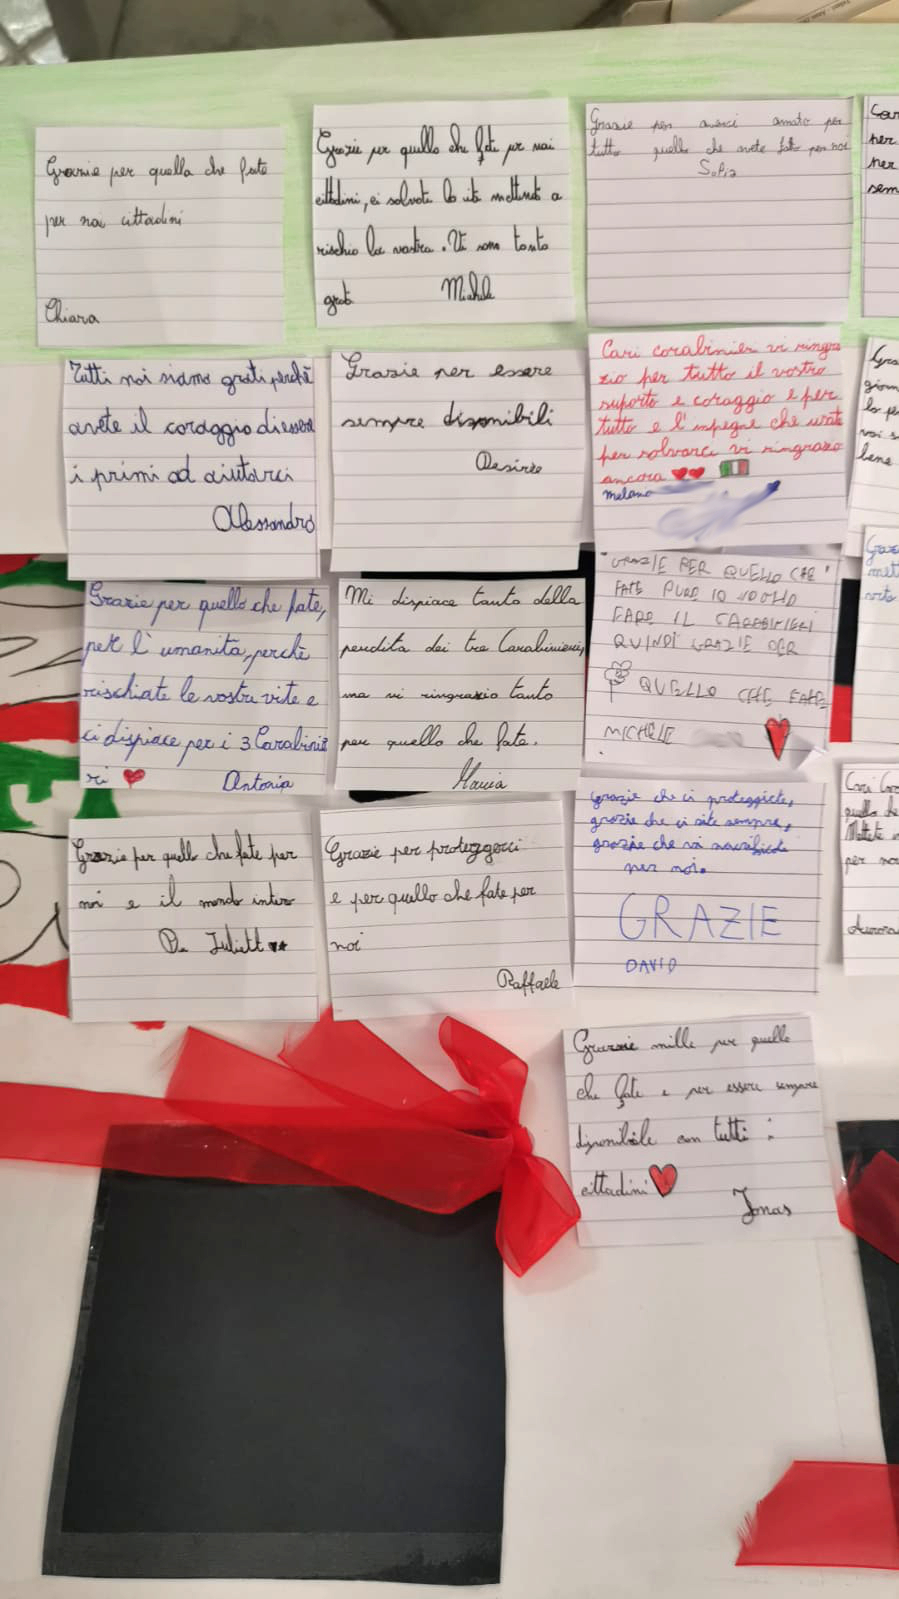 Grazie per quello che fate
per noi cittadini
Chiara
Grazie per quello che fate per noi
cittadini, ci salvate la vita mettendo a
rischio la vostra. Vi sono tanto
grato Michele
Grazie per averci amato per
tutto quello che avete fatto per noi
Sofia
Car
per
per
sem
Tutti noi siamo grati perchè
avete il coraggio di essere
i primi ad aiutarci
Alessandro
Grazie per essere
sempre disponibili
Desirèe
Cari carabinieri vi ringra
zio per tutto il vostro
suporto e coraggio e per
tutto e l'impegne che usate
per salvarci vi ringrazio
ancora
melana
Gra
giorn
lo pe
voi s
bene
Grazie per quello che fate,
per l'umanita, perchè
rischiate le vostre vite e
ci dispiace per i 3 Carabinie
ri Antonia
Mi dispiace tanto della
perdita dei tre Carabinieri,
ma vi ringrazio tanto
per quello che fate.
GRAZIE PER QUELLO CHE
FATE PURE IO VOGLIO
FARE IL CARABINIERI
QUINDI GRAZIE PER
QUELLO CHE FATE
MICHELE
Graz
mett
vostr
Grazie per quello che fate per
noi e il mondo intero
Da Juliett
Grazie per proteggerci
e per quello che fate per
noi
Raffaele
grazie che ci proteggiete,
grazie che ci siete sempre,
grazie che vi sacrificate
per noi.
GRAZIE
DAVID
Cari Car
quello che
Mettete
per no
Aurora
Grazie mille per quello
che fate e per essere sempre
disponibile con tutti i
cittadini
Jonas